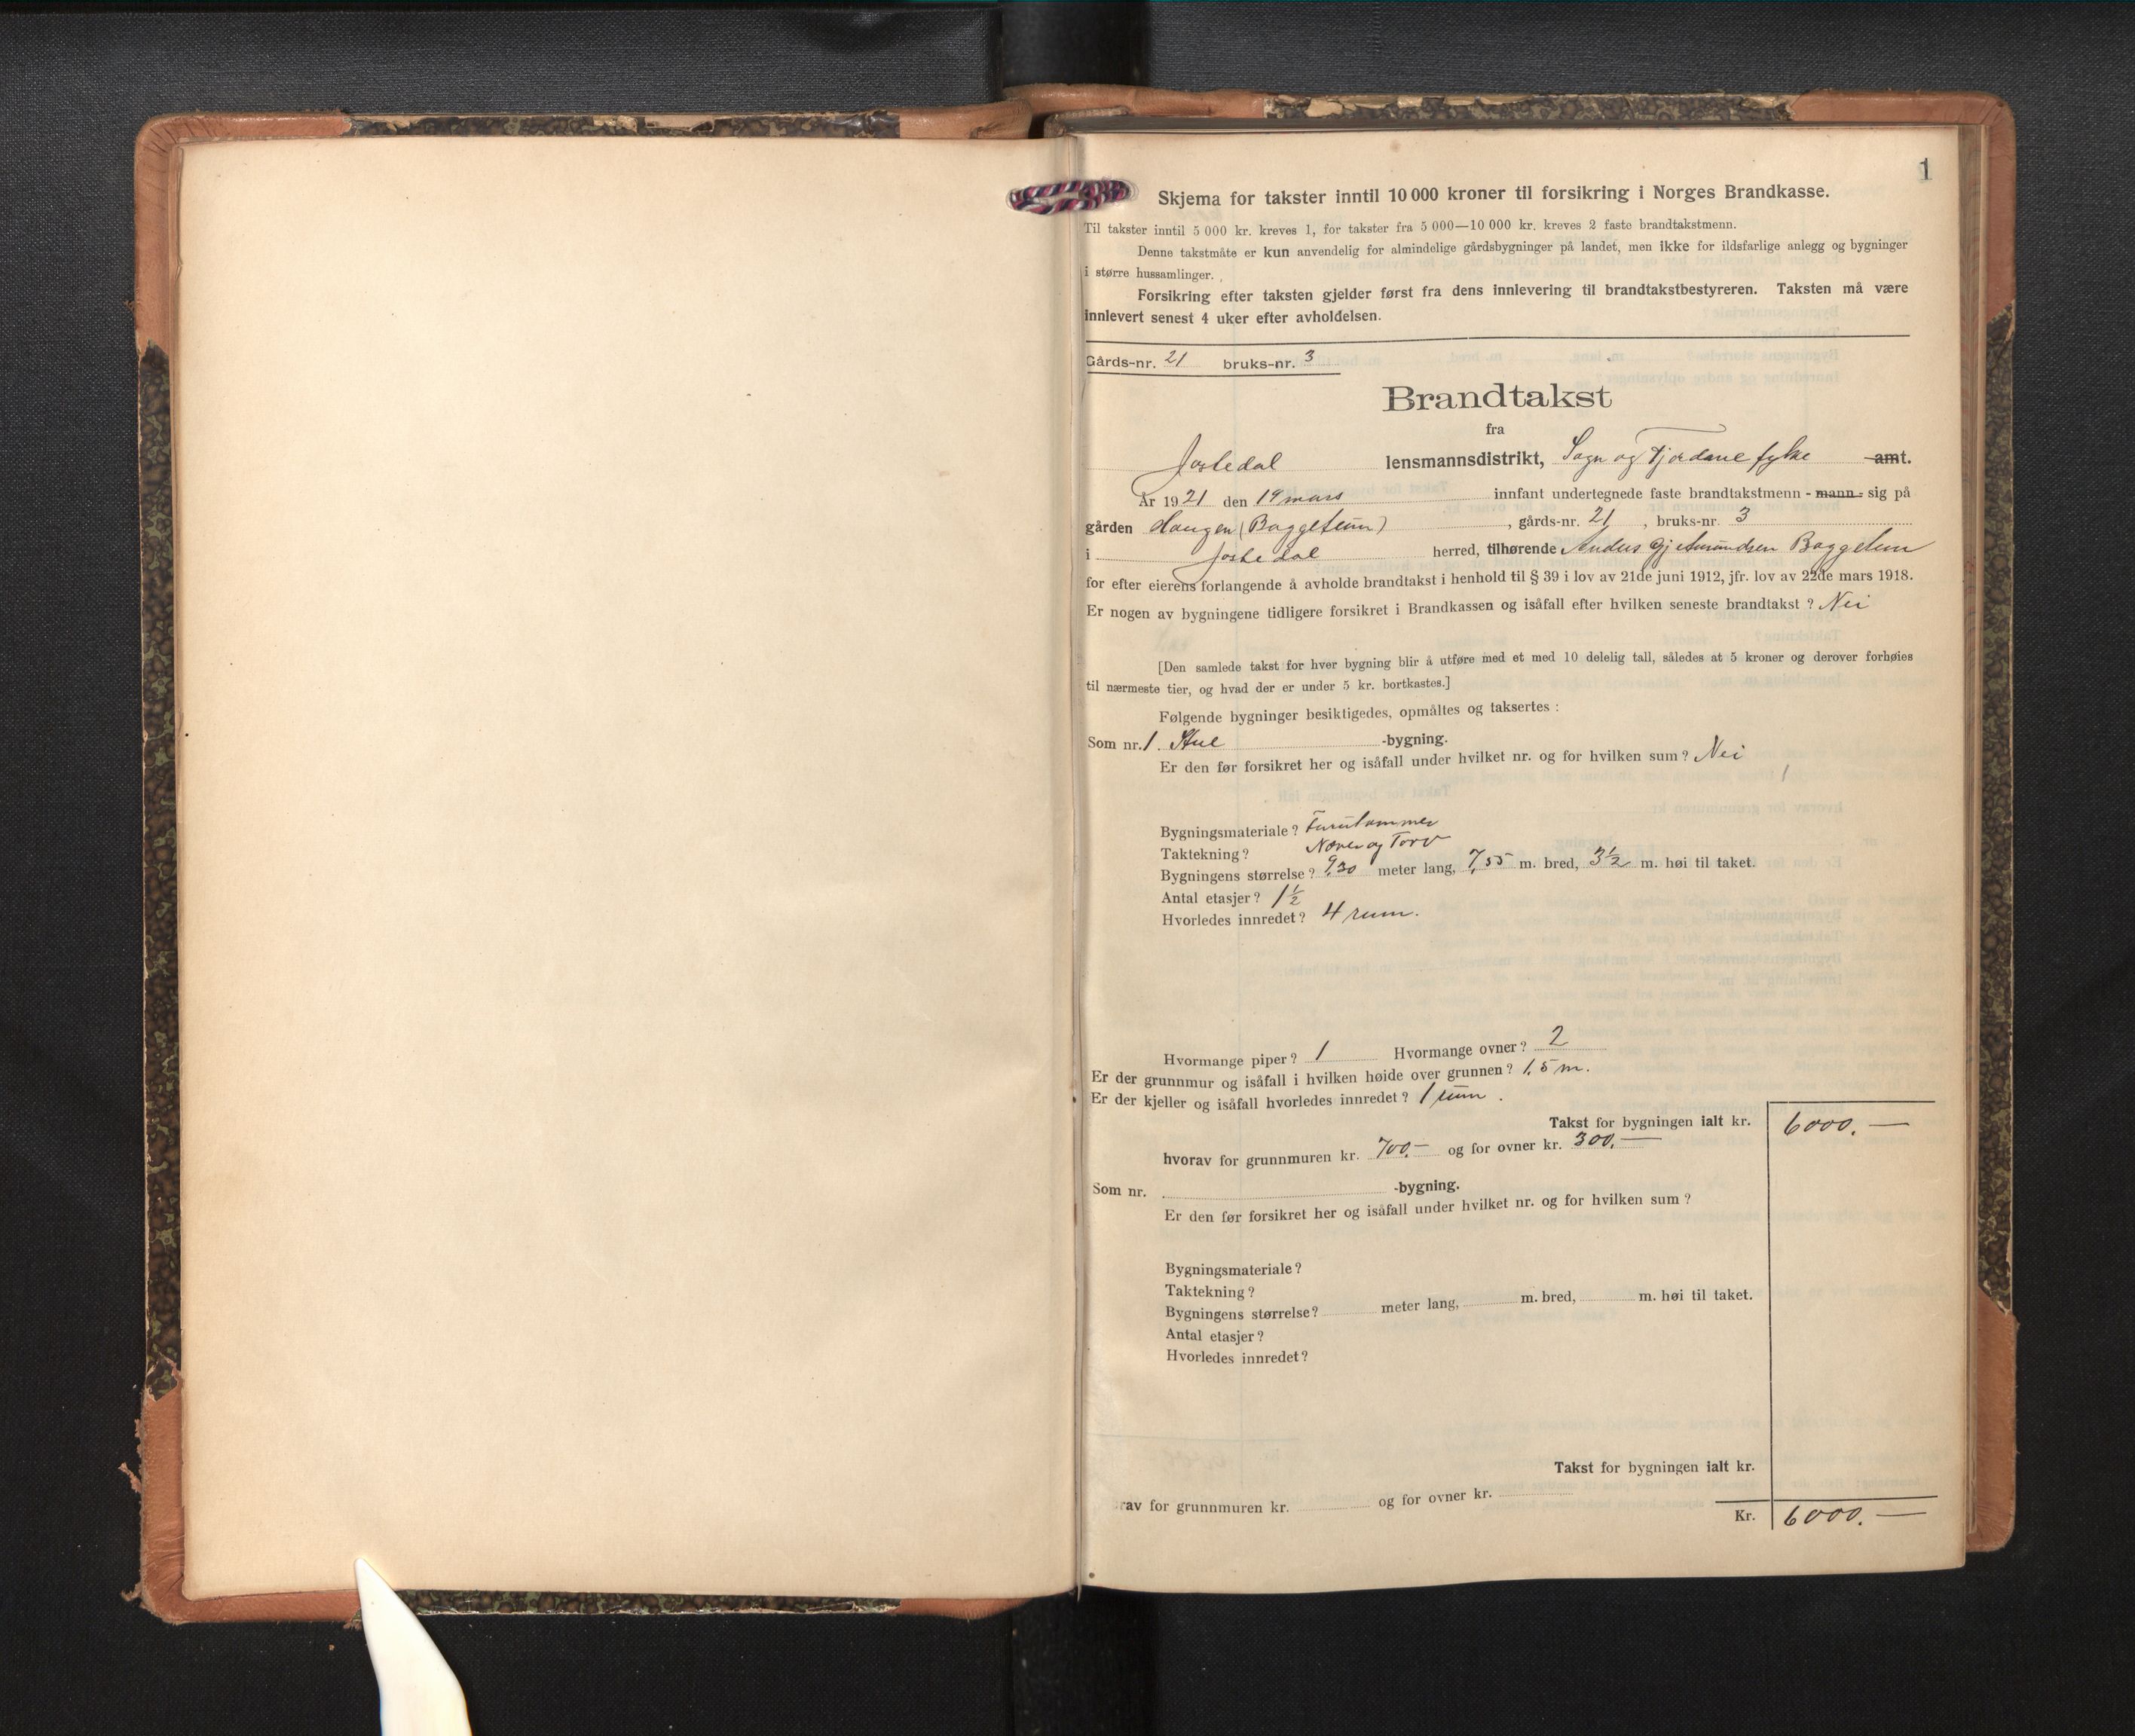 1
Skjema for takster inntil 10 000 kroner til forsikring i Norges Brandkasse.
Til takster inntil 5 000 kr. kreves 1, for takster fra 5 000—10 000 kr. kreves 2 faste brandtakstmenn.
Denne takstmåte er kun anvendelig for almindelige gårdsbygninger på landet, men ikke for ildsfarlige anlegg og bygninger
i større hussamlinger.
Forsikring efter taksten gjelder først fra dens innlevering til brandtakstbestyreren. Taksten må være
innlevert senest 4 uker efter avholdelsen.
Gårds-nr. 21 bruks-nr. 3
Brandtakst
fra
Jostedal lensmannsdistrikt, Sogn og Fjordane fylke amt.
År 1921 den 19 mars innfant undertegnede faste brandtakstmenn - mann - sig på
gården Haugen (Baggetun), gårds-nr. 21, bruks-nr. 3
i Jostedal herred, tilhørende Anders Gjetmundsen Baggetun
for efter eierens forlangende å avholde brandtakst i henhold til § 39 i lov av 21de juni 1912, jfr. lov av 22de mars 1918.
Er nogen av bygningene tidligere forsikret i Brandkassen og isåfall efter hvilken seneste brandtakst? Nei
[Den samlede takst for hver bygning blir å utføre med et med 10 delelig tall, således at 5 kroner og derover forhøies
til nærmeste tier, og hvad der er under 5 kr. bortkastes.]
Følgende bygninger besiktigedes, opmåltes og taksertes :
Som nr. 1. Stue -bygning.
Er den før forsikret her og isåfall under hvilket nr. og for hvilken sum? Nei
Bygningsmateriale? Furutømmer
Taktekning? Næver og Torv
Bygningens størrelse? 9,30 meter lang, 7,55 m. bred, 3½ m. høi til taket.
Antal etasjer? 1½
Hvorledes innredet? 4 rum.
Hvormange piper? 1 Hvormange ovner? 2
Er der grunnmur og isåfall i hvilken høide over grunnen? 1,5 m.
Er der kjeller og isåfall hvorledes innredet? 1 rum.
Takst for bygningen ialt kr. 6000.—
hvorav for grunnmuren kr. 700.— og for ovner kr. 300.—
Som nr. -bygning.
Er den før forsikret her og isåfall under hvilket nr. og for hvilken sum?
Bygningsmateriale?
Taktekning?
Bygningens størrelse? meter lang, m. bred, m. høi til taket.
Antal etasjer?
Hvorledes innredet?
Takst for bygningen ialt kr.
rav for grunnmuren kr. og for ovner kr.
Kr. 6000.—